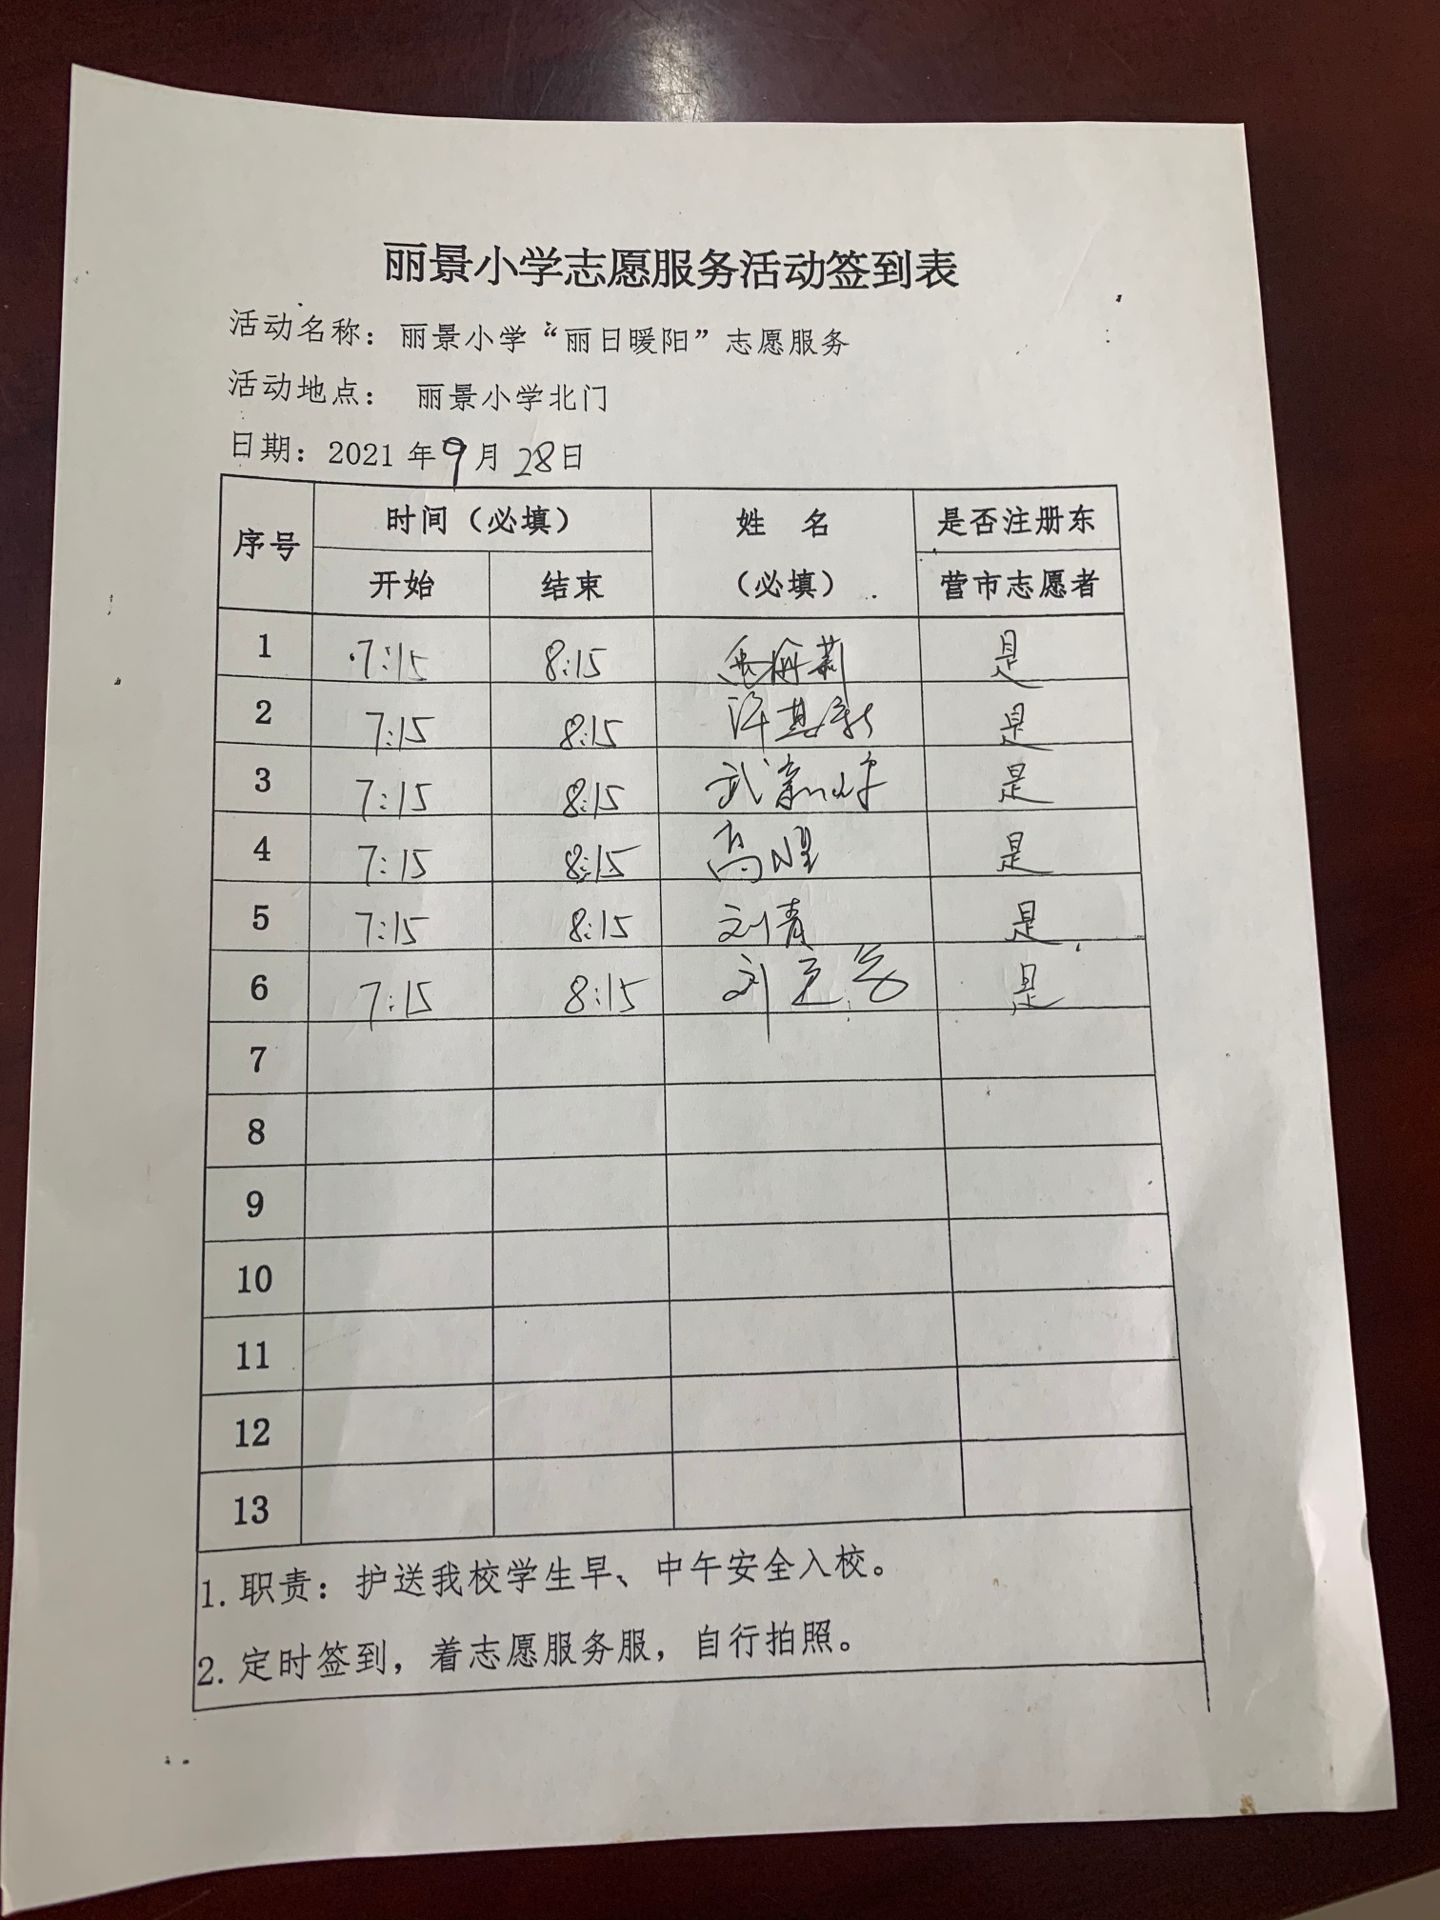 丽景小学志愿服务活动签到表
活动名称：丽景小学“丽日暖阳”志愿服务
活动地点： 丽景小学北门
日期：2021年9月28日
序号 时间（必填） 姓 名 是否注册东
开始 结束 （必填） 营市志愿者
1 7:15 8:15 是
2 7:15 8:15 是
3 7:15 8:15 武 是
4 7:15 8:15 高 是
5 7:15 8:15 刘青 是
6 7:15 8:15 刘 是
7
8
9
10
11
12
13
1.职责：护送我校学生早、中午安全入校。
2.定时签到，着志愿服务服，自行拍照。